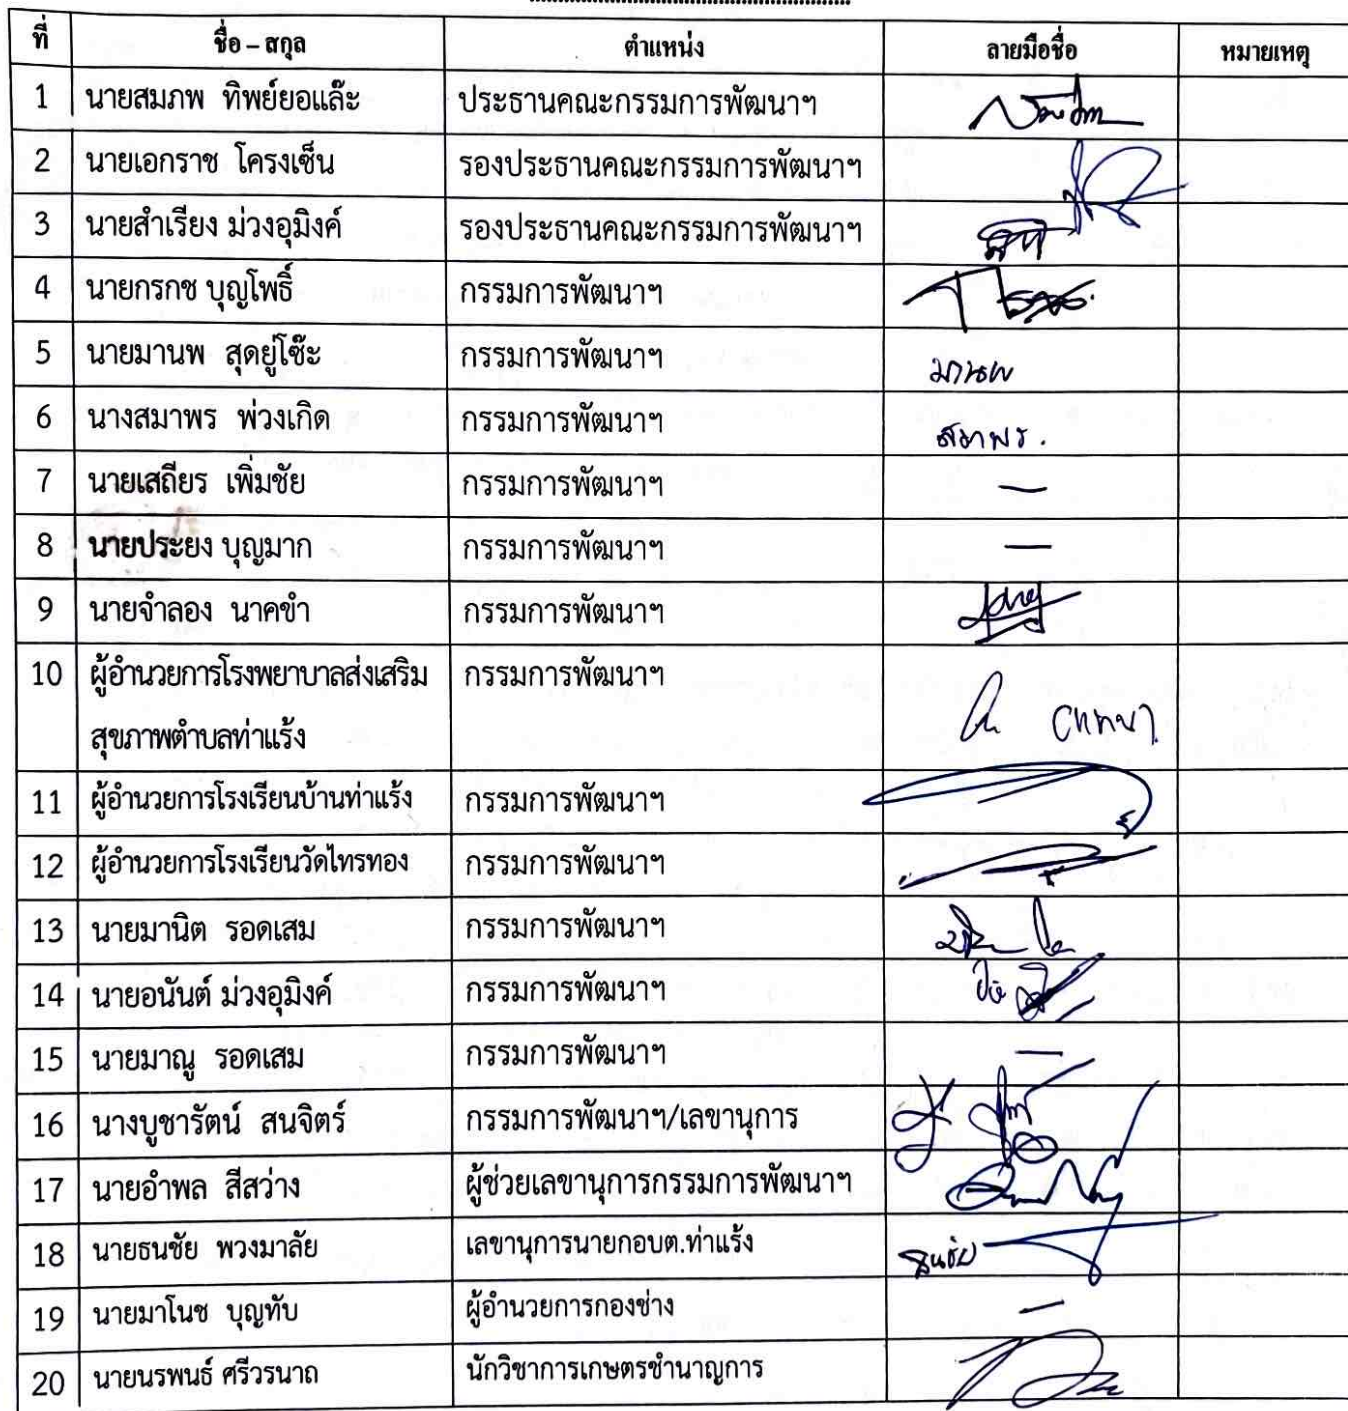 ที่ ชื่อ – สกุล ตำแหน่ง ลายมือชื่อ หมายเหตุ
1 นายสมภพ ทิพย์ยอแล๊ะ ประธานคณะกรรมการพัฒนาฯ
2 นายเอกราช โครงเซ็น รองประธานคณะกรรมการพัฒนาฯ
3 นายสำเรียง ม่วงอุมิงค์ รองประธานคณะกรรมการพัฒนาฯ
4 นายกรกช บุญโพธิ์ กรรมการพัฒนาฯ
5 นายมานพ สุดยู่โซ๊ะ กรรมการพัฒนาฯ มานพ
6 นางสมาพร พ่วงเกิด กรรมการพัฒนาฯ สมาพร.
7 นายเสถียร เพิ่มชัย กรรมการพัฒนาฯ –
8 นายประยง บุญมาก กรรมการพัฒนาฯ –
9 นายจำลอง นาคขำ กรรมการพัฒนาฯ
10 ผู้อำนวยการโรงพยาบาลส่งเสริม กรรมการพัฒนาฯ
สุขภาพตำบลท่าแร้ง
11 ผู้อำนวยการโรงเรียนบ้านท่าแร้ง กรรมการพัฒนาฯ
12 ผู้อำนวยการโรงเรียนวัดไทรทอง กรรมการพัฒนาฯ
13 นายมานิต รอดเสม กรรมการพัฒนาฯ
14 นายอนันต์ ม่วงอุมิงค์ กรรมการพัฒนาฯ
15 นายมาณู รอดเสม กรรมการพัฒนาฯ –
16 นางบูชารัตน์ สนจิตร์ กรรมการพัฒนาฯ/เลขานุการ
17 นายอำพล สีสว่าง ผู้ช่วยเลขานุการกรรมการพัฒนาฯ
18 นายธนชัย พวงมาลัย เลขานุการนายกอบต.ท่าแร้ง ธนชัย
19 นายมาโนช บุญทับ ผู้อำนวยการกองช่าง –
20 นายนรพนธ์ ศรีวรนาถ นักวิชาการเกษตรชำนาญการ